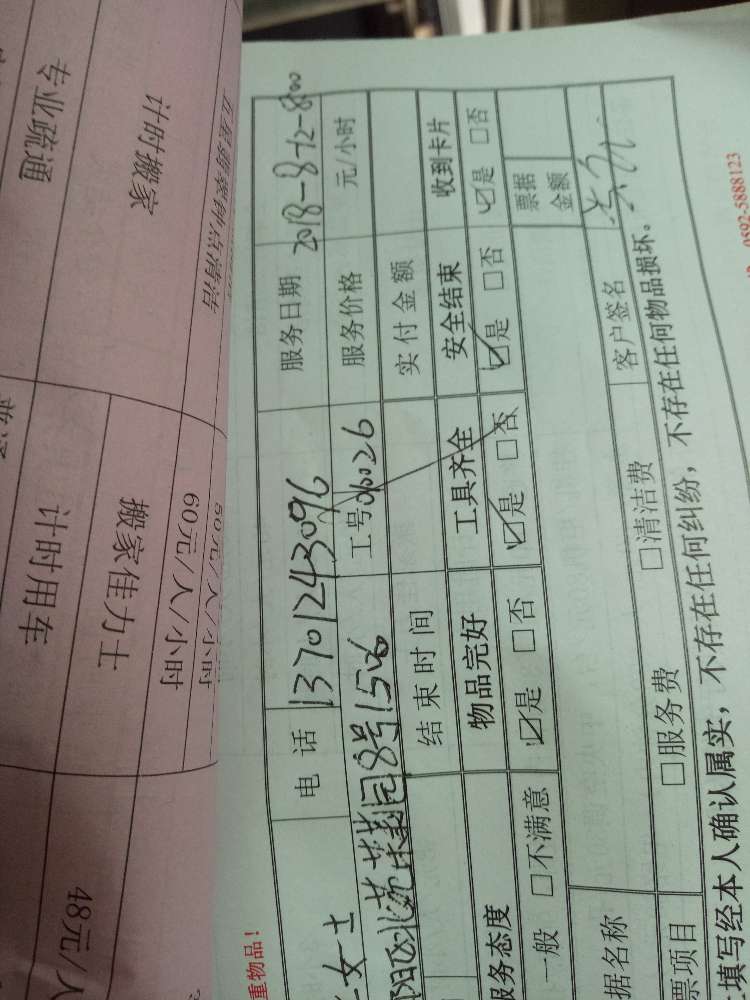 专业疏通
计时搬家
计时用车
搬家佳力士
60元/人/小时
48元/人
重物品！
女士 电话 13701243096 服务日期 2018-8-12-8:00
8号1506 工号06026 服务价格 元/小时
结束时间 实付金额
服务态度 物品完好 工具齐全 安全结束 收到卡片
一般 □不满意 ☑是 □否 ☑是 □否 ☑是 □否 ☑是 □否
据名称 票据金额
票项目 □服务费 □清洁费 客户签名
填写经本人确认属实，不存在任何纠纷，不存在任何物品损坏。
0592-5888123